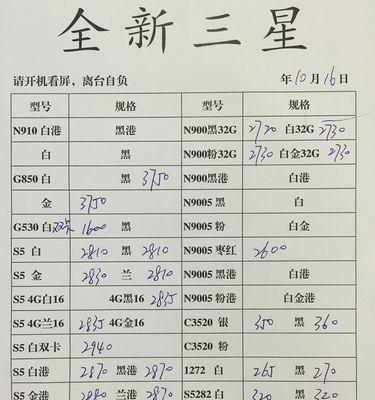 全新三星
请开机看屏，离台自负 年10月16日
型号 规格 型号 规格
N910 白港 黑港 N900黑32G 2720 白32G 2730
白 黑 N900粉32G 2730 白金32G 2730
G850 白 黑 3750 N900黑港 白港
金 3750 N9005 黑 白
G530 白双卡 1600 黑 N9005 粉 白金
S5 白 2810 黑 2810 N9005 枣红 2600
S5 金 2830 兰 2810 N9005 黑港 白港
S5 4G白16 4G黑16 2835 N9005 粉港 白金港
S5 4G兰16 2835 4G金16 C3520 银 350 黑 360
S5 白双卡 2940 C3520 粉
S5 白港 2870 黑港 2870 1272 白 265 黑 270
S5 金港 2880 兰港 2870 S5282 白 320 黑 320